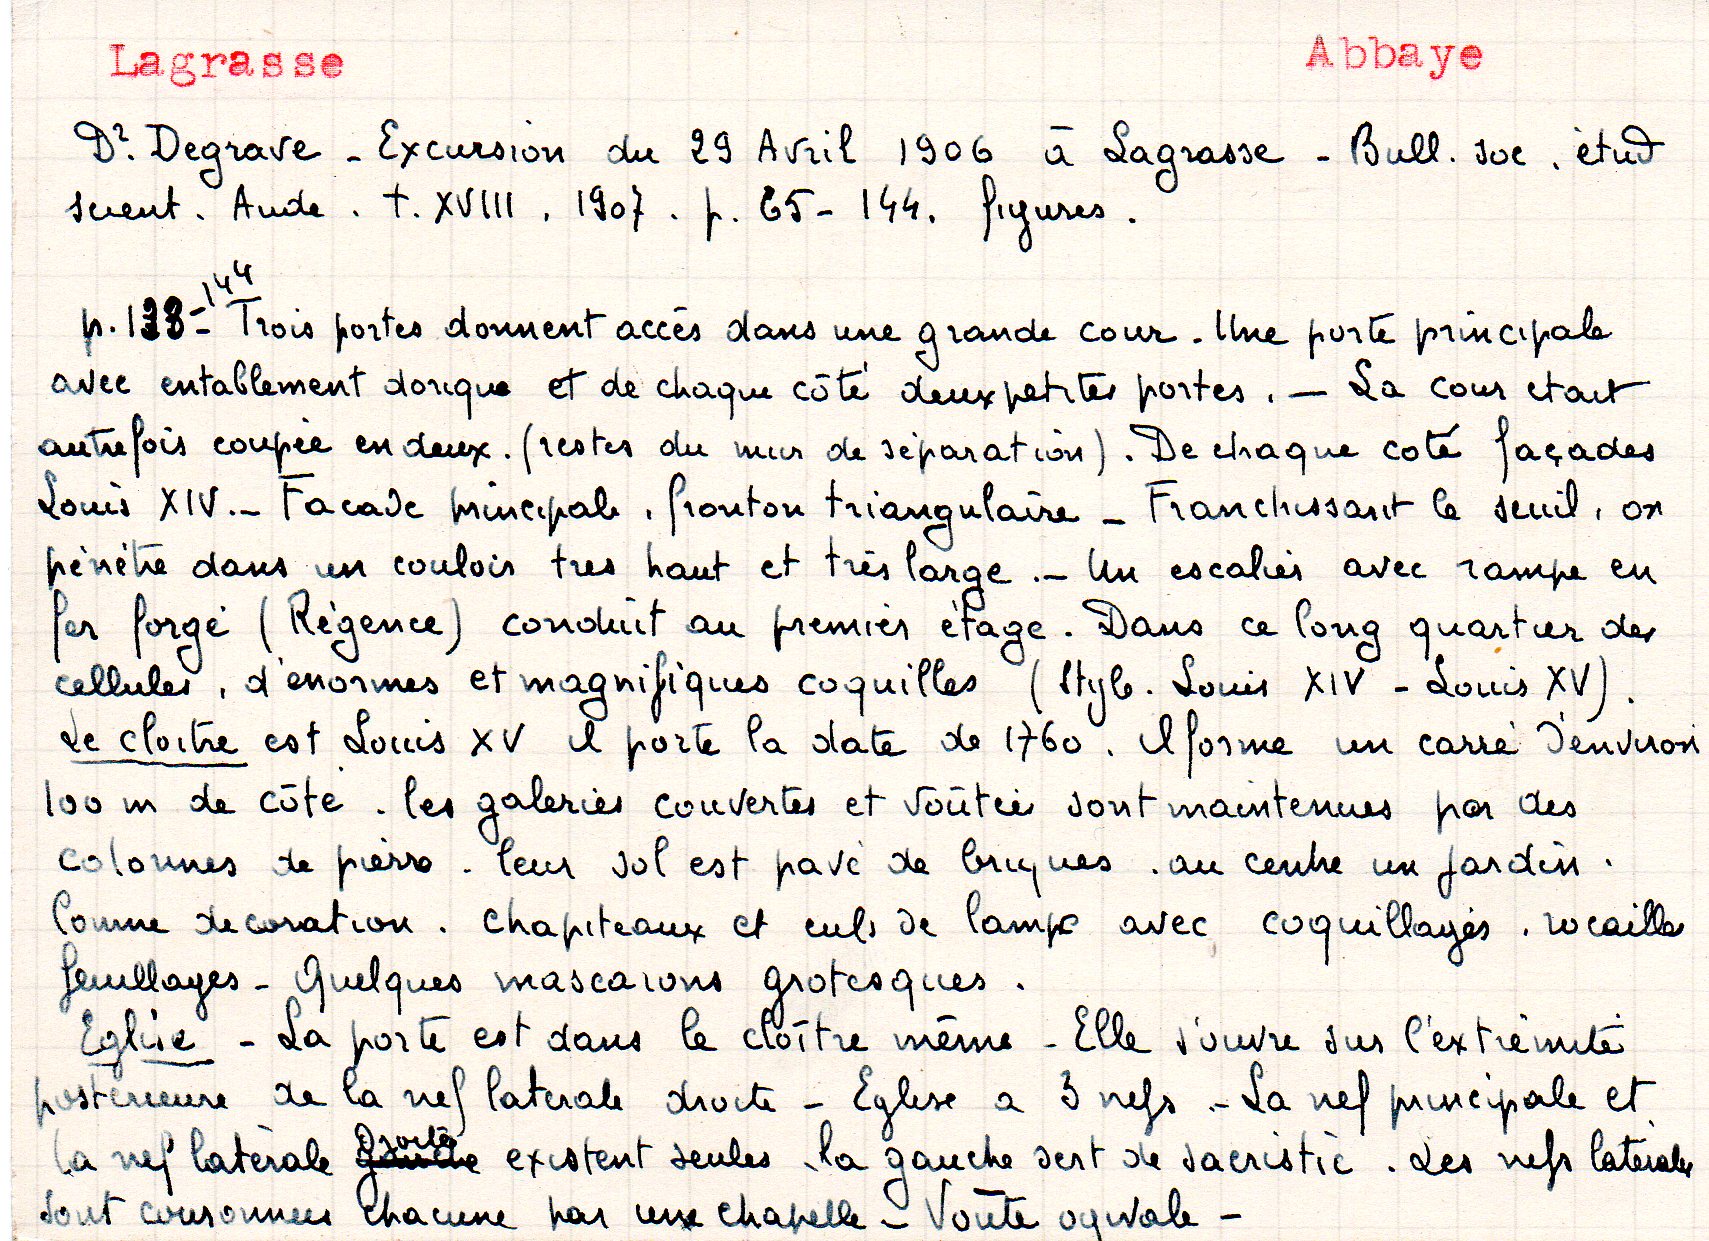 Lagrasse Abbaye
Dr. Degrave - Excursion du 29 Avril 1906 à Lagrasse - Bull. soc. étud
scient. Aude. t. XVIII. 1907. p. 65-144. figures.
p. 138-144 Trois portes donnent accès dans une grande cour. Une porte principale
avec entablement dorique et de chaque côté deux petites portes. - La cour etait
autrefois coupée en deux. (restes du mur de séparation). De chaque coté façades
Louis XIV. - Facade principale, fronton triangulaire - Franchissant le seuil, on
pénètre dans un couloir tres haut et très large. - Un escalier avec rampe en
fer forgé (Régence) conduit au premier étage. Dans ce long quartier des
cellules, d'enormes et magnifiques coquilles (style. Louis XIV - Louis XV).
Le cloitre est Louis XV il porte la date de 1760. Il forme un carré d'environ
100 m de côté. les galeries couvertes et voûtées sont maintenues par des
colonnes de pierre. leur sol est pavé de briques. au centre un jardin.
Comme decoration. chapiteaux et culs de lampe avec coquillages. rocailles
feuillages - Quelques mascarons grotesques.
Eglise - La porte est dans le cloître même - Elle s'ouvre sur l'extrémité
posterieure de la nef laterale droite - Eglise a 3 nefs. - La nef principale et
la nef latérale droite existent seules. la gauche sert de sacristie. Les nefs latérales
sont couronnées chacune par une chapelle - Voûte ogivale -